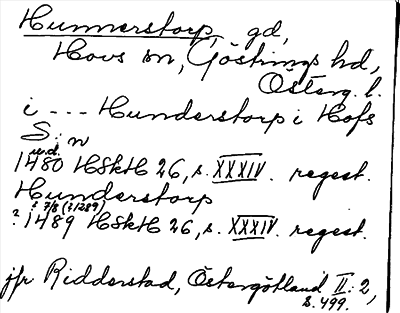 Hunnerstorp, gd,
Hovs sn, Göstrings hd,
Österg. l.
i --- Hunderstorp i Hofs
S:n
u.d.
1480 HSkH 26, s. XXXIV. regest.
Hunderstorp
? 7/8 (?1289)
? 1489 HSkH 26, s. XXXIV. regest.
jfr Ridderstad, Östergötland II: 2,
s. 499.